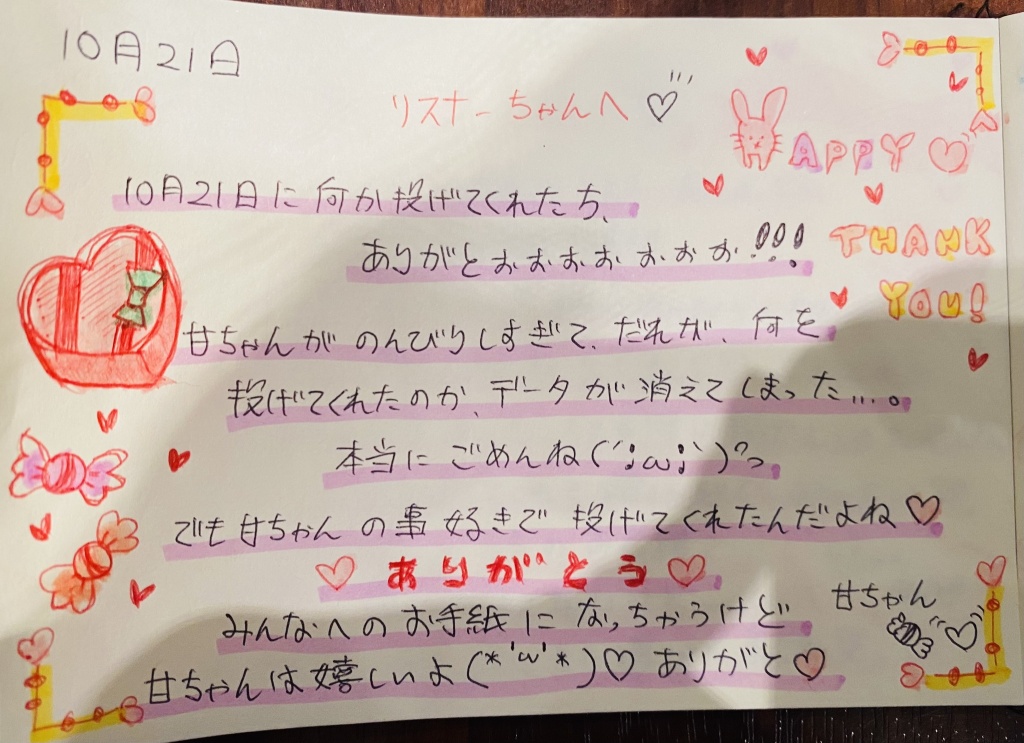 10月21日
リスナーちゃんへ♡
APPY♡
10月21日に何か投げてくれたち、
ありがとぉぉぉぉぉぉぉ!!!
THANK
YOU!
甘ちゃんがのんびりしすぎて、だれが、何を
投げてくれたのか、データが消えてしまった...。
本当にごめんね(´;ω;`)っ
でも甘ちゃんの事好きで投げてくれたんだよね♡
♡ありがとう♡
みんなへのお手紙になっちゃうけど
甘ちゃんは嬉しいよ(*'ω'*)♡ありがと♡
甘ちゃん